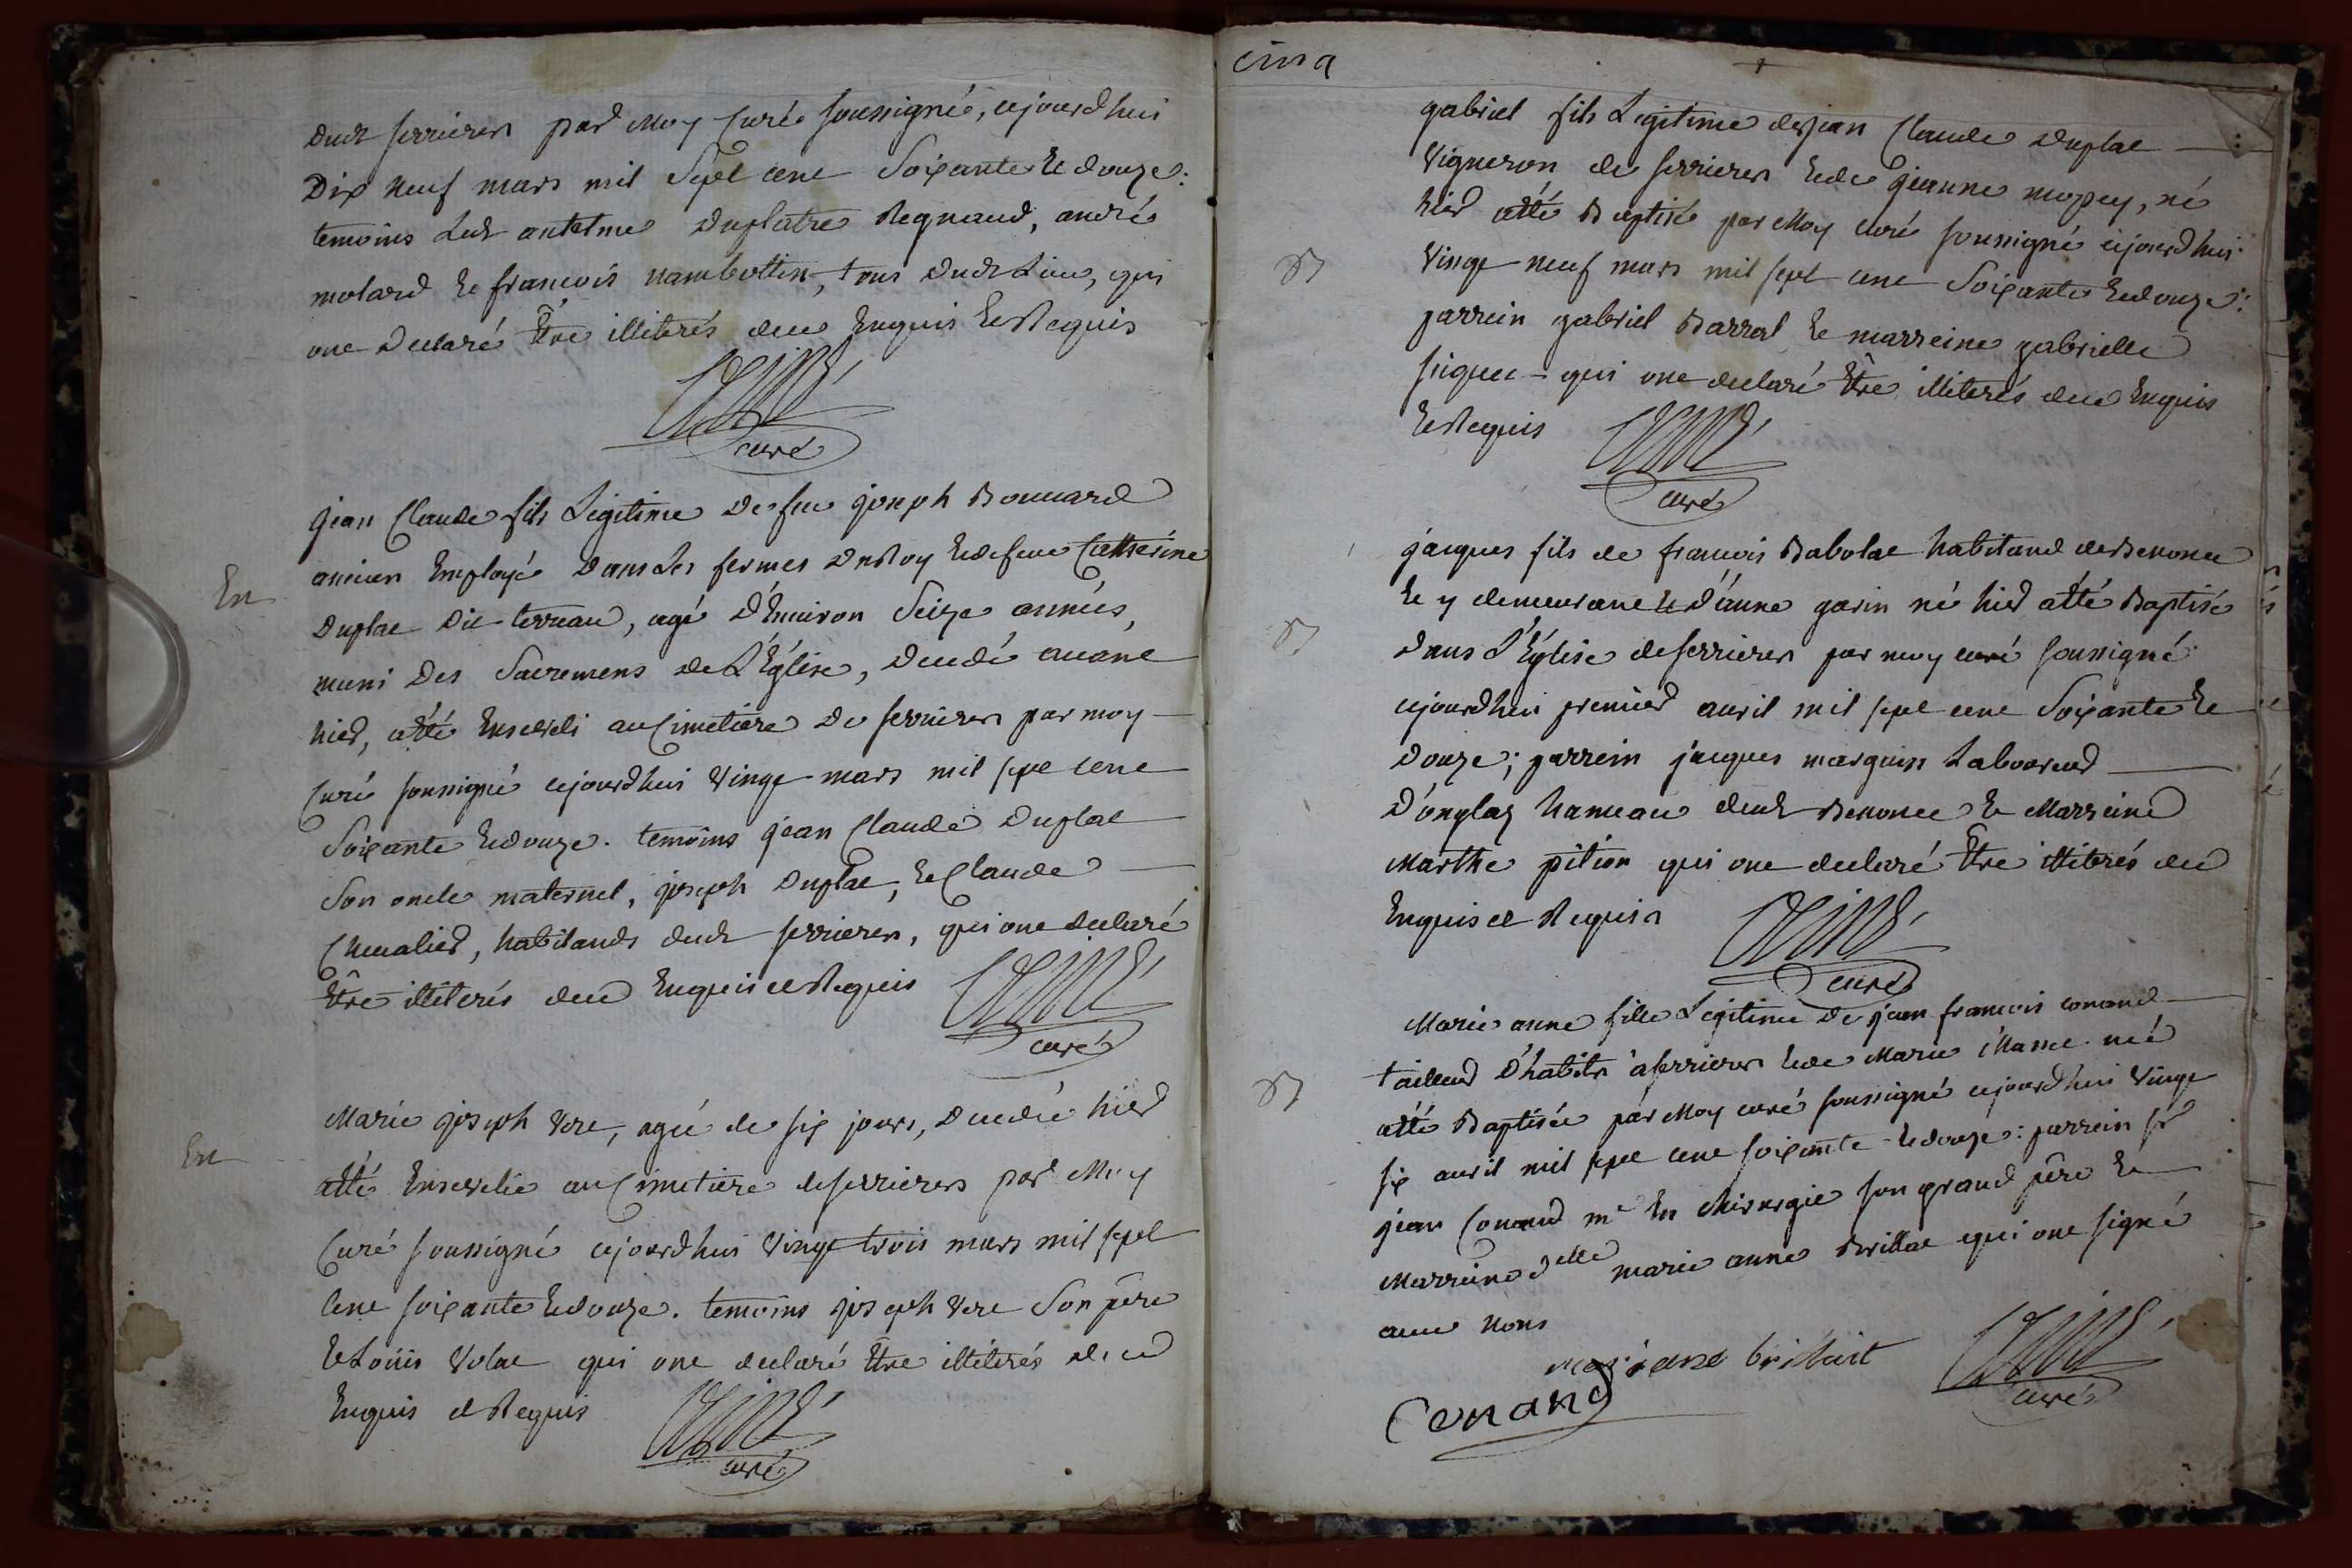 dudt serrieres par Moy Curé soussigné, cejourdhui
Dix neuf mars mil Sept cent Soixante Et douze:
temoins Ledt antelme Duplatre Regnaud, andré
molard Et francois nambottin, tous dudt Lieu, qui
ont Declaré Être illiterés deue Enquis Et Requis
curé
En
jean Claude fils Legitime De feu joseph Bonnard
ancien Employé Dans Les fermes Du Roy Et de feue Catherine
Duplat Dit terreau, agé D'Environ Seize années,
muni Des Sacremens De L'Église, Decedé avant
hier, a été Enseveli au Cimetiere De serrieres par moy
Curé soussigné cejourdhui Vingt mars mil sept cent
Soixante Et douze. temoins jean Claude Duplat
Son oncle maternel, joseph Duplat, Et Claude
Chevalier, habitands dudt serrieres, qui ont declaré
Être illiterés deue Enquis et Requis
curé
En
Marie joseph Vere, agée de six jours, Decedée hier
a été Ensevelie au Cimetiere de serrieres par Moy
Curé soussigné cejourdhui Vingt trois mars mil sept
Cent soixante Et douze. temoins joseph Vere Son pere
Et Loüis Volat qui ont declaré Être illiterés deue
Enquis et Requis
curé
cinq
gabriel fils Legitime de jean Claude Duplat
Vigneron de serrieres Et de jeanne mopey, né
hier a été Baptisé par Moy curé soussigné cejourdhui
B
Vingt neuf mars mil sept cent Soixante Et douze:
parrein gabriel Barral Et marreine gabrielle
qui ont declaré Être illiterés deue Enquis
Et Requis
curé
jacques fils de francois Babolat habitand de Benonce
Et y demeurant Et d'anne garin né hier a été Baptisé
B
Dans L'Église de serrieres par moy curé soussigné
cejourdhui premier avril mil sept cent Soixante Et
Douze; parrein jacques marquis Laboureur
D'onglas hameau dudt Benonce Et Marreine
Marthe pition qui ont declaré Être illiterés deue
Enquis et Requis
curé
Marie anne fille Legitime De jean francois conand
tailleur D'habits à serrieres Et de Marie Mance née
B
a été Baptisée par Moy curé soussigné cejourdhui Vingt
six avril mil sept cent soixante Et douze: parrein sr
jean Conand me En chirurgie son grand pere Et
Marreine delle marie anne Brillat qui ont signé
avec Nous
mariane brillait
Conand
curé